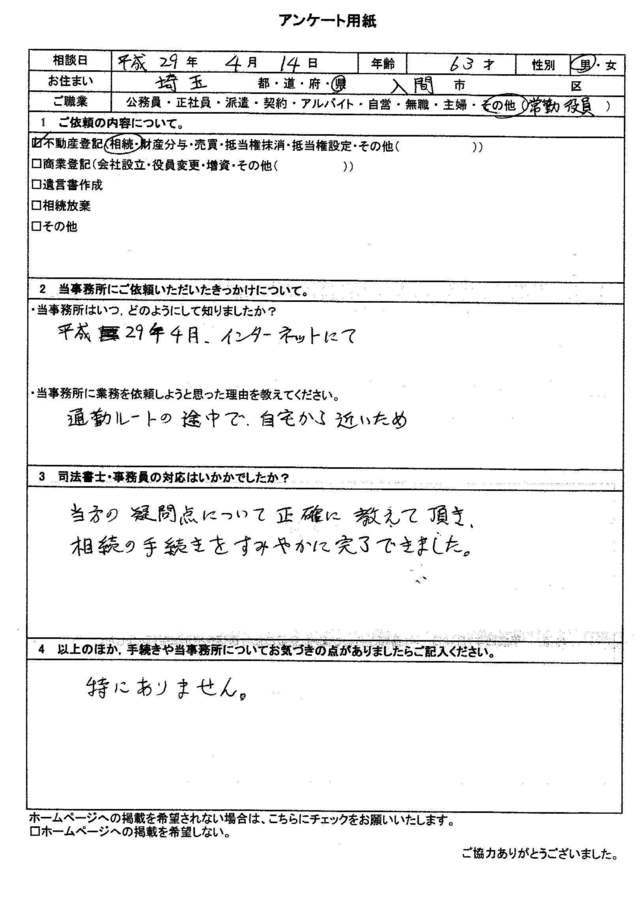 アンケート用紙
相談日 平成 29 年 4 月 14 日 年齢 63 才 性別 男・女
お住まい 埼玉 都・道・府・県 入間 市 区
ご職業 公務員・正社員・派遣・契約・アルバイト・自営・無職・主婦・その他(常勤役員)
1 ご依頼の内容について。
☑不動産登記(相続・財産分与・売買・抵当権抹消・抵当権設定・その他( ))
□商業登記(会社設立・役員変更・増資・その他( ))
□遺言書作成
□相続放棄
□その他
2 当事務所にご依頼いただいたきっかけについて。
・当事務所はいつ、どのようにして知りましたか?
平成29年4月、インターネットにて
・当事務所に業務を依頼しようと思った理由を教えてください。
通勤ルートの途中で、自宅から近いため
3 司法書士・事務員の対応はいかがでしたか?
当方の疑問点について正確に教えて頂き、
相続の手続きをすみやかに完了できました。
4 以上のほか、手続きや当事務所についてお気づきの点がありましたらご記入ください。
特にありません。
ホームページへの掲載を希望されない場合は、こちらにチェックをお願いいたします。
□ホームページへの掲載を希望しない。
ご協力ありがとうございました。